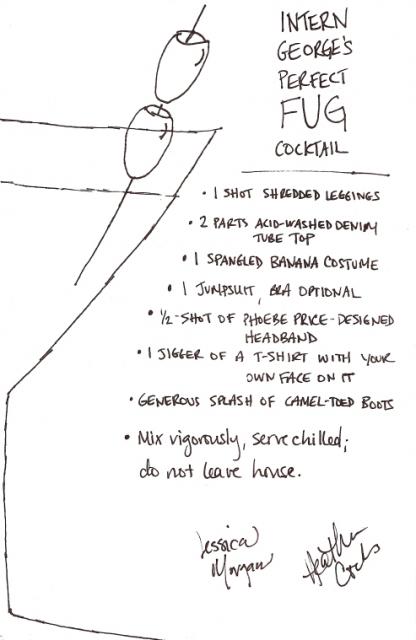 INTERN
GEORGE'S
PERFECT
FUG
COCKTAIL
• 1 SHOT SHREDDED LEGGINGS
• 2 PARTS ACID-WASHED DENIM
TUBE TOP
• 1 SPANGLED BANANA COSTUME
• 1 JUMPSUIT, BRA OPTIONAL
• 1/2-SHOT OF PHOEBE PRICE-DESIGNED
HEADBAND
• 1 JIGGER OF A T-SHIRT WITH YOUR
OWN FACE ON IT
• GENEROUS SPLASH OF CAMEL-TOED BOOTS
• Mix vigorously, serve chilled;
do not leave house.
Jessica
Morgan
Heather
Cocks